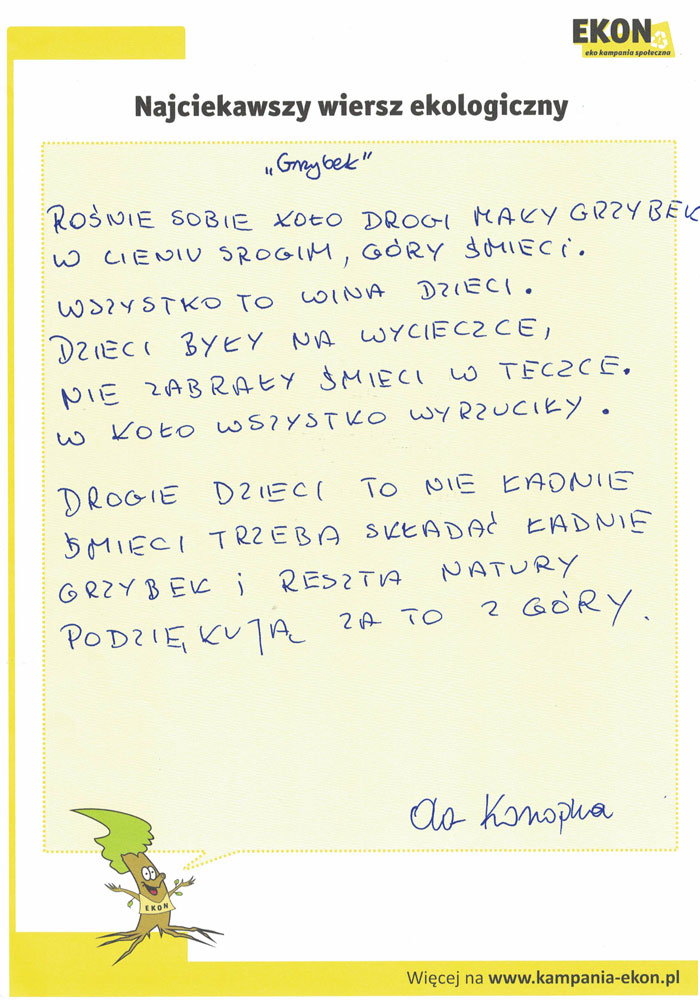 EKON
eko kampania społeczna
Najciekawszy wiersz ekologiczny
„Grzybek”
ROŚNIE SOBIE KOŁO DROGI MAŁY GRZYBEK
W CIENIU SROGIM, GÓRY ŚMIECI.
WSZYSTKO TO WINA DZIECI.
DZIECI BYŁY NA WYCIECZCE,
NIE ZABRAŁY ŚMIECI W TECZCE.
W KOŁO WSZYSTKO WYRZUCIŁY.
DROGIE DZIECI TO NIE ŁADNIE
ŚMIECI TRZEBA SKŁADAĆ ŁADNIE
GRZYBEK i RESZTA NATURY
PODZIĘKUJĄ ZA TO Z GÓRY.
Ola Konopka
EKON
Więcej na www.kampania-ekon.pl